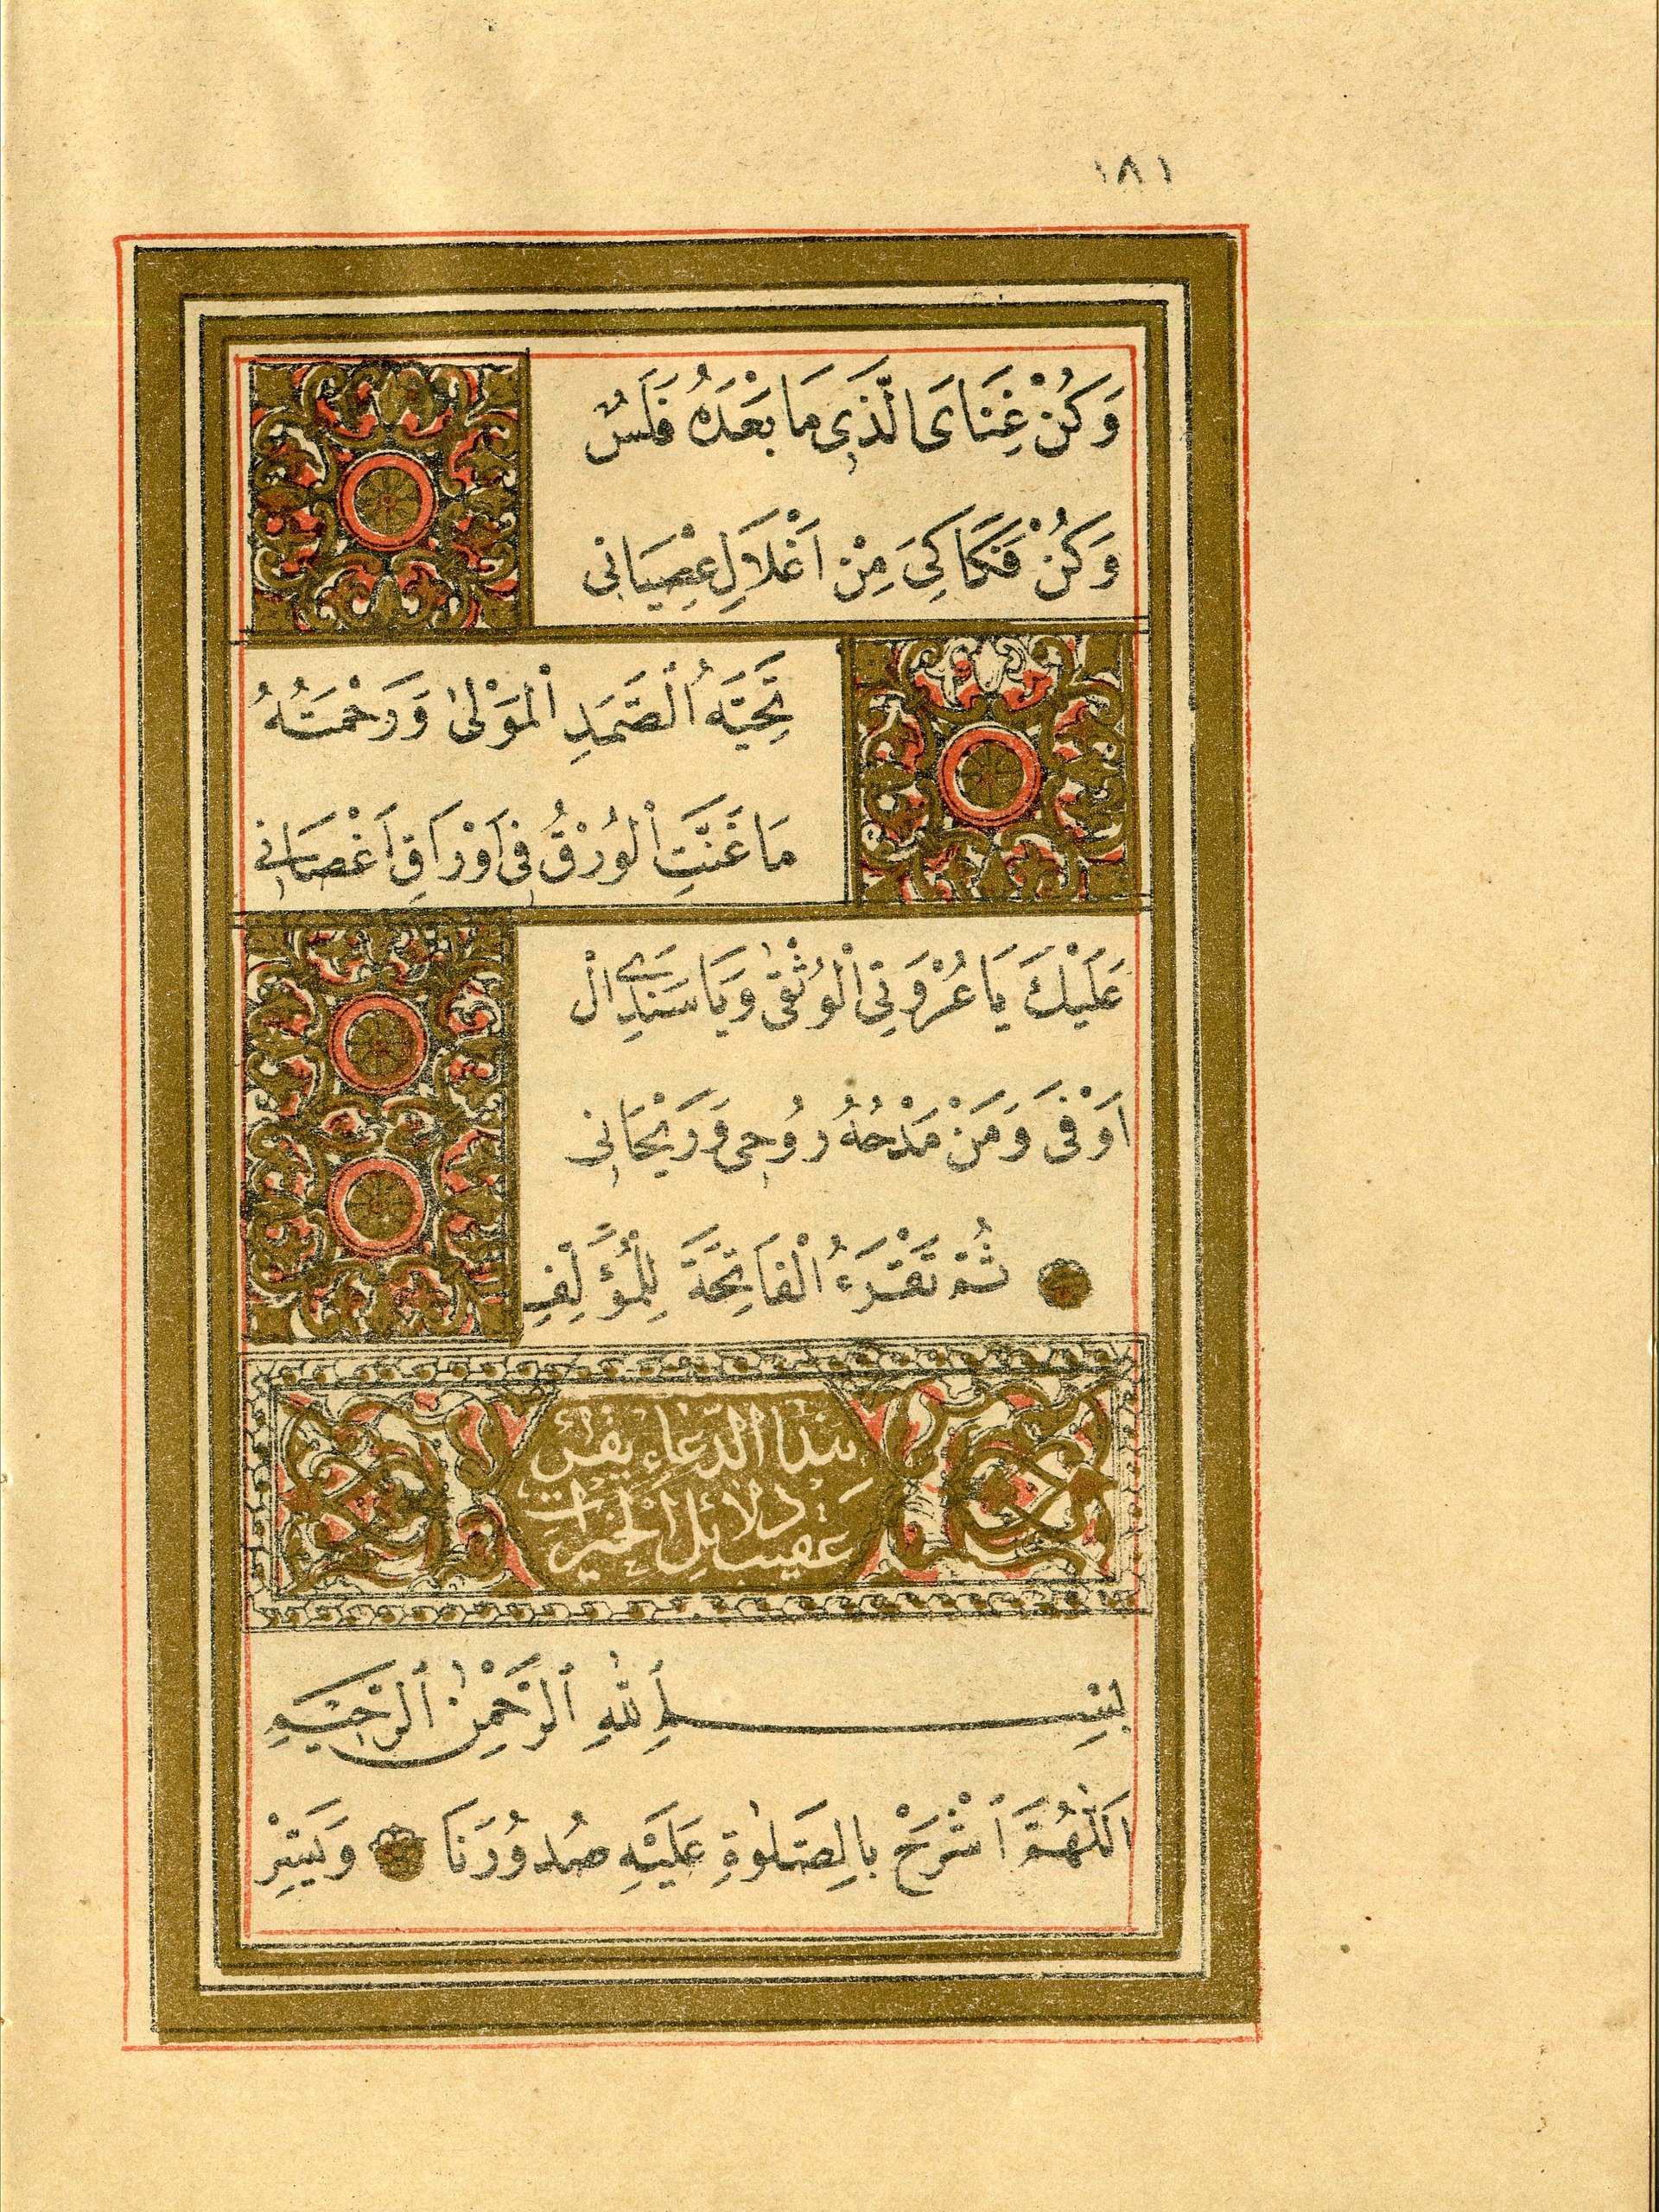 ١٨١
وَكُنْ غِنَاىَ الَّذِى مَا بَعْدَهُ فَلَسٌ
وَكُنْ فَكَاكِىَ مِنْ اَغْلَالِ عِصْيَانِى
تَحِيَّةُ الصَّمَدِ الْمَوْلٰى وَرَحْمَتُهُ
مَا غَنَّتِ الْوُرْقُ فِى اَوْرَاقِ اَغْصَانِى
عَلَيْكَ يَا عُرْوَتِى الْوُثْقٰى وَيَا سَنَدِى الْ
اَوْفَى وَمَنْ مَدْحُهُ رُوحِى وَرَيْحَانِى
ثُمَّ تَقْرَءُ الْفَاتِحَةَ لِلْمُؤَلِّفِ
هٰذَا الدُّعَاءُ يُقْرَأُ
عَقِيبَ دَلَائِلِ الْخَيْرَاتِ
بِسْمِ اللّٰهِ الرَّحْمٰنِ الرَّحِيمِ
اَللّٰهُمَّ اشْرَحْ بِالصَّلٰوةِ عَلَيْهِ صُدُورَنَا وَيَسِّرْ